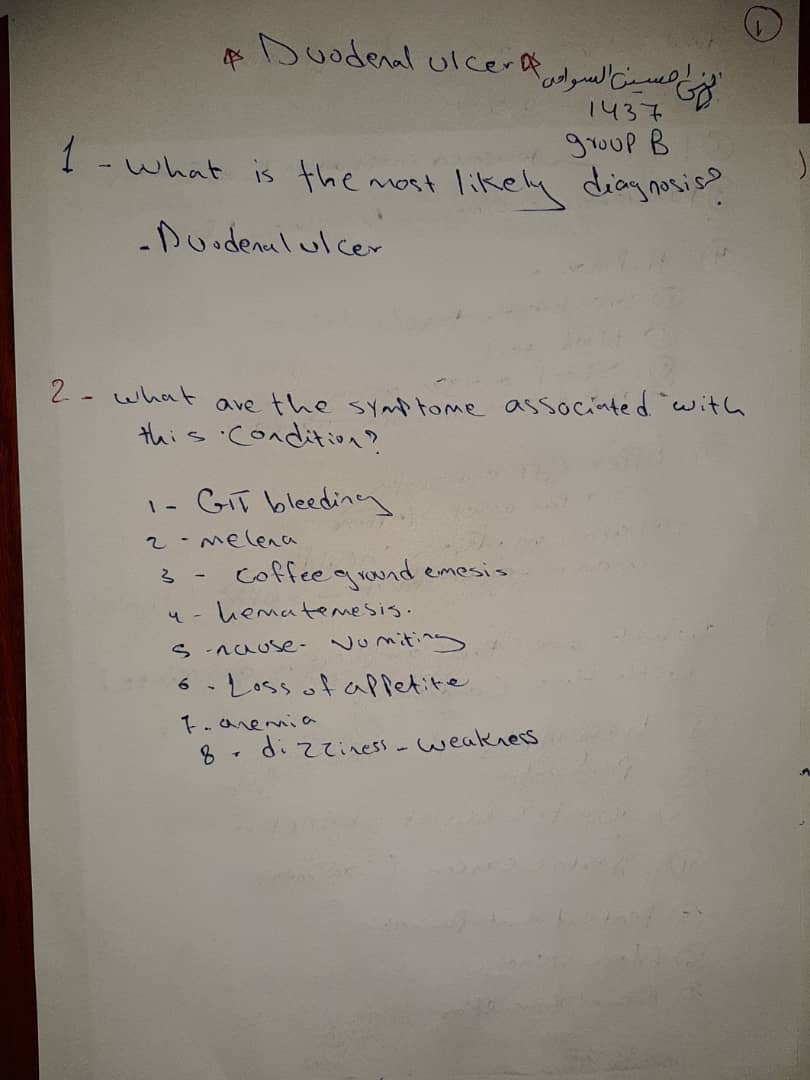 1
* Duodenal ulcer *
حسين
1437
group B
1 - What is the most likely diagnosis?
- Duodenal ulcer
2 - what are the symptome associated with
this condition?
1 - GIT bleeding
2 - melena
3 - coffee ground emesis
4 - hematemesis.
5 - nause - vomiting
6 - Loss of appetite
7 - anemia
8 - dizziness - weakness